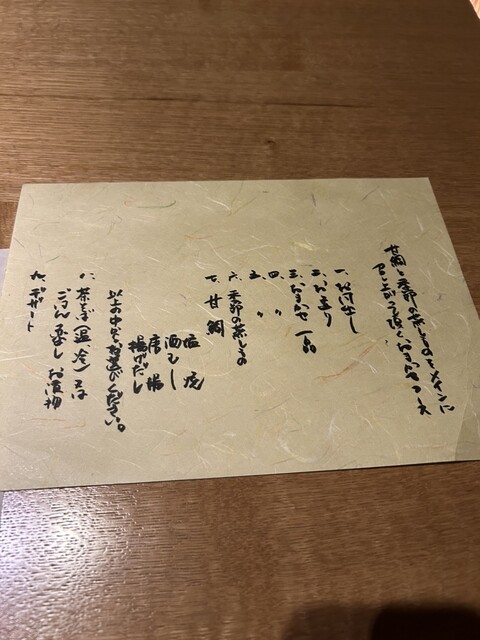 甘鯛と季節の蒸しものをメインに
召し上がって頂くおまかせコース
一、お付出し
二、お造り
三、おまかせ一品
四、〃
五、〃
六、季節の蒸しもの
七、甘鯛
塩焼
酒むし
唐揚
揚げだし
以上の中からお選びください。
八、茶そば(温、冷)又は
ごはん 赤だし お漬物
九、デザート